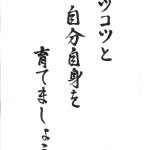 ツコツと
自分自身を
育てましょう